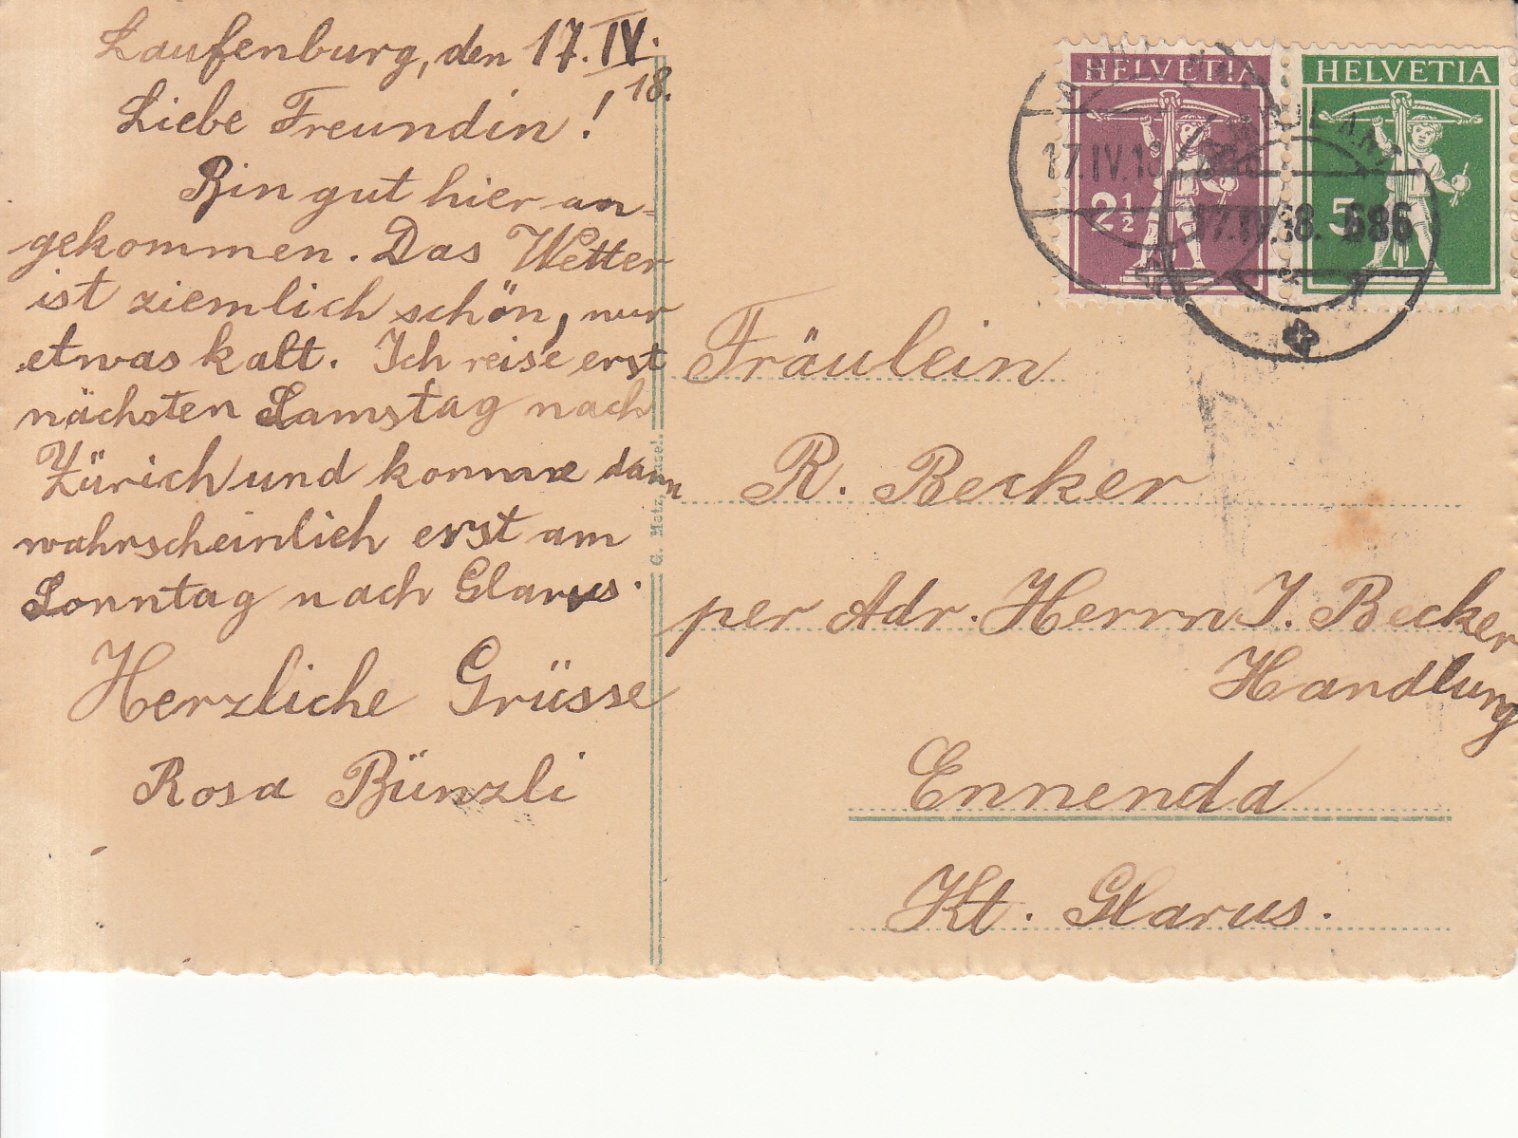 Laufenburg, den 17. IV.
18.
Liebe Freundin!
Bin gut hier an-
gekommen. Das Wetter
ist ziemlich schön, nur
etwas kalt. Ich reise erst
nächsten Samstag nach
Zürich und komme dann
wahrscheinlich erst am
Sonntag nach Glarus.
Herzliche Grüsse
Rosa Bünzli
HELVETIA
2½
HELVETIA
5
17.IV.18
17.IV.18.
Fräulein
R. Becker
per Adr. Herrn J. Becker
Handlung
Ennenda
Kt. Glarus.
G. Metz, Basel.